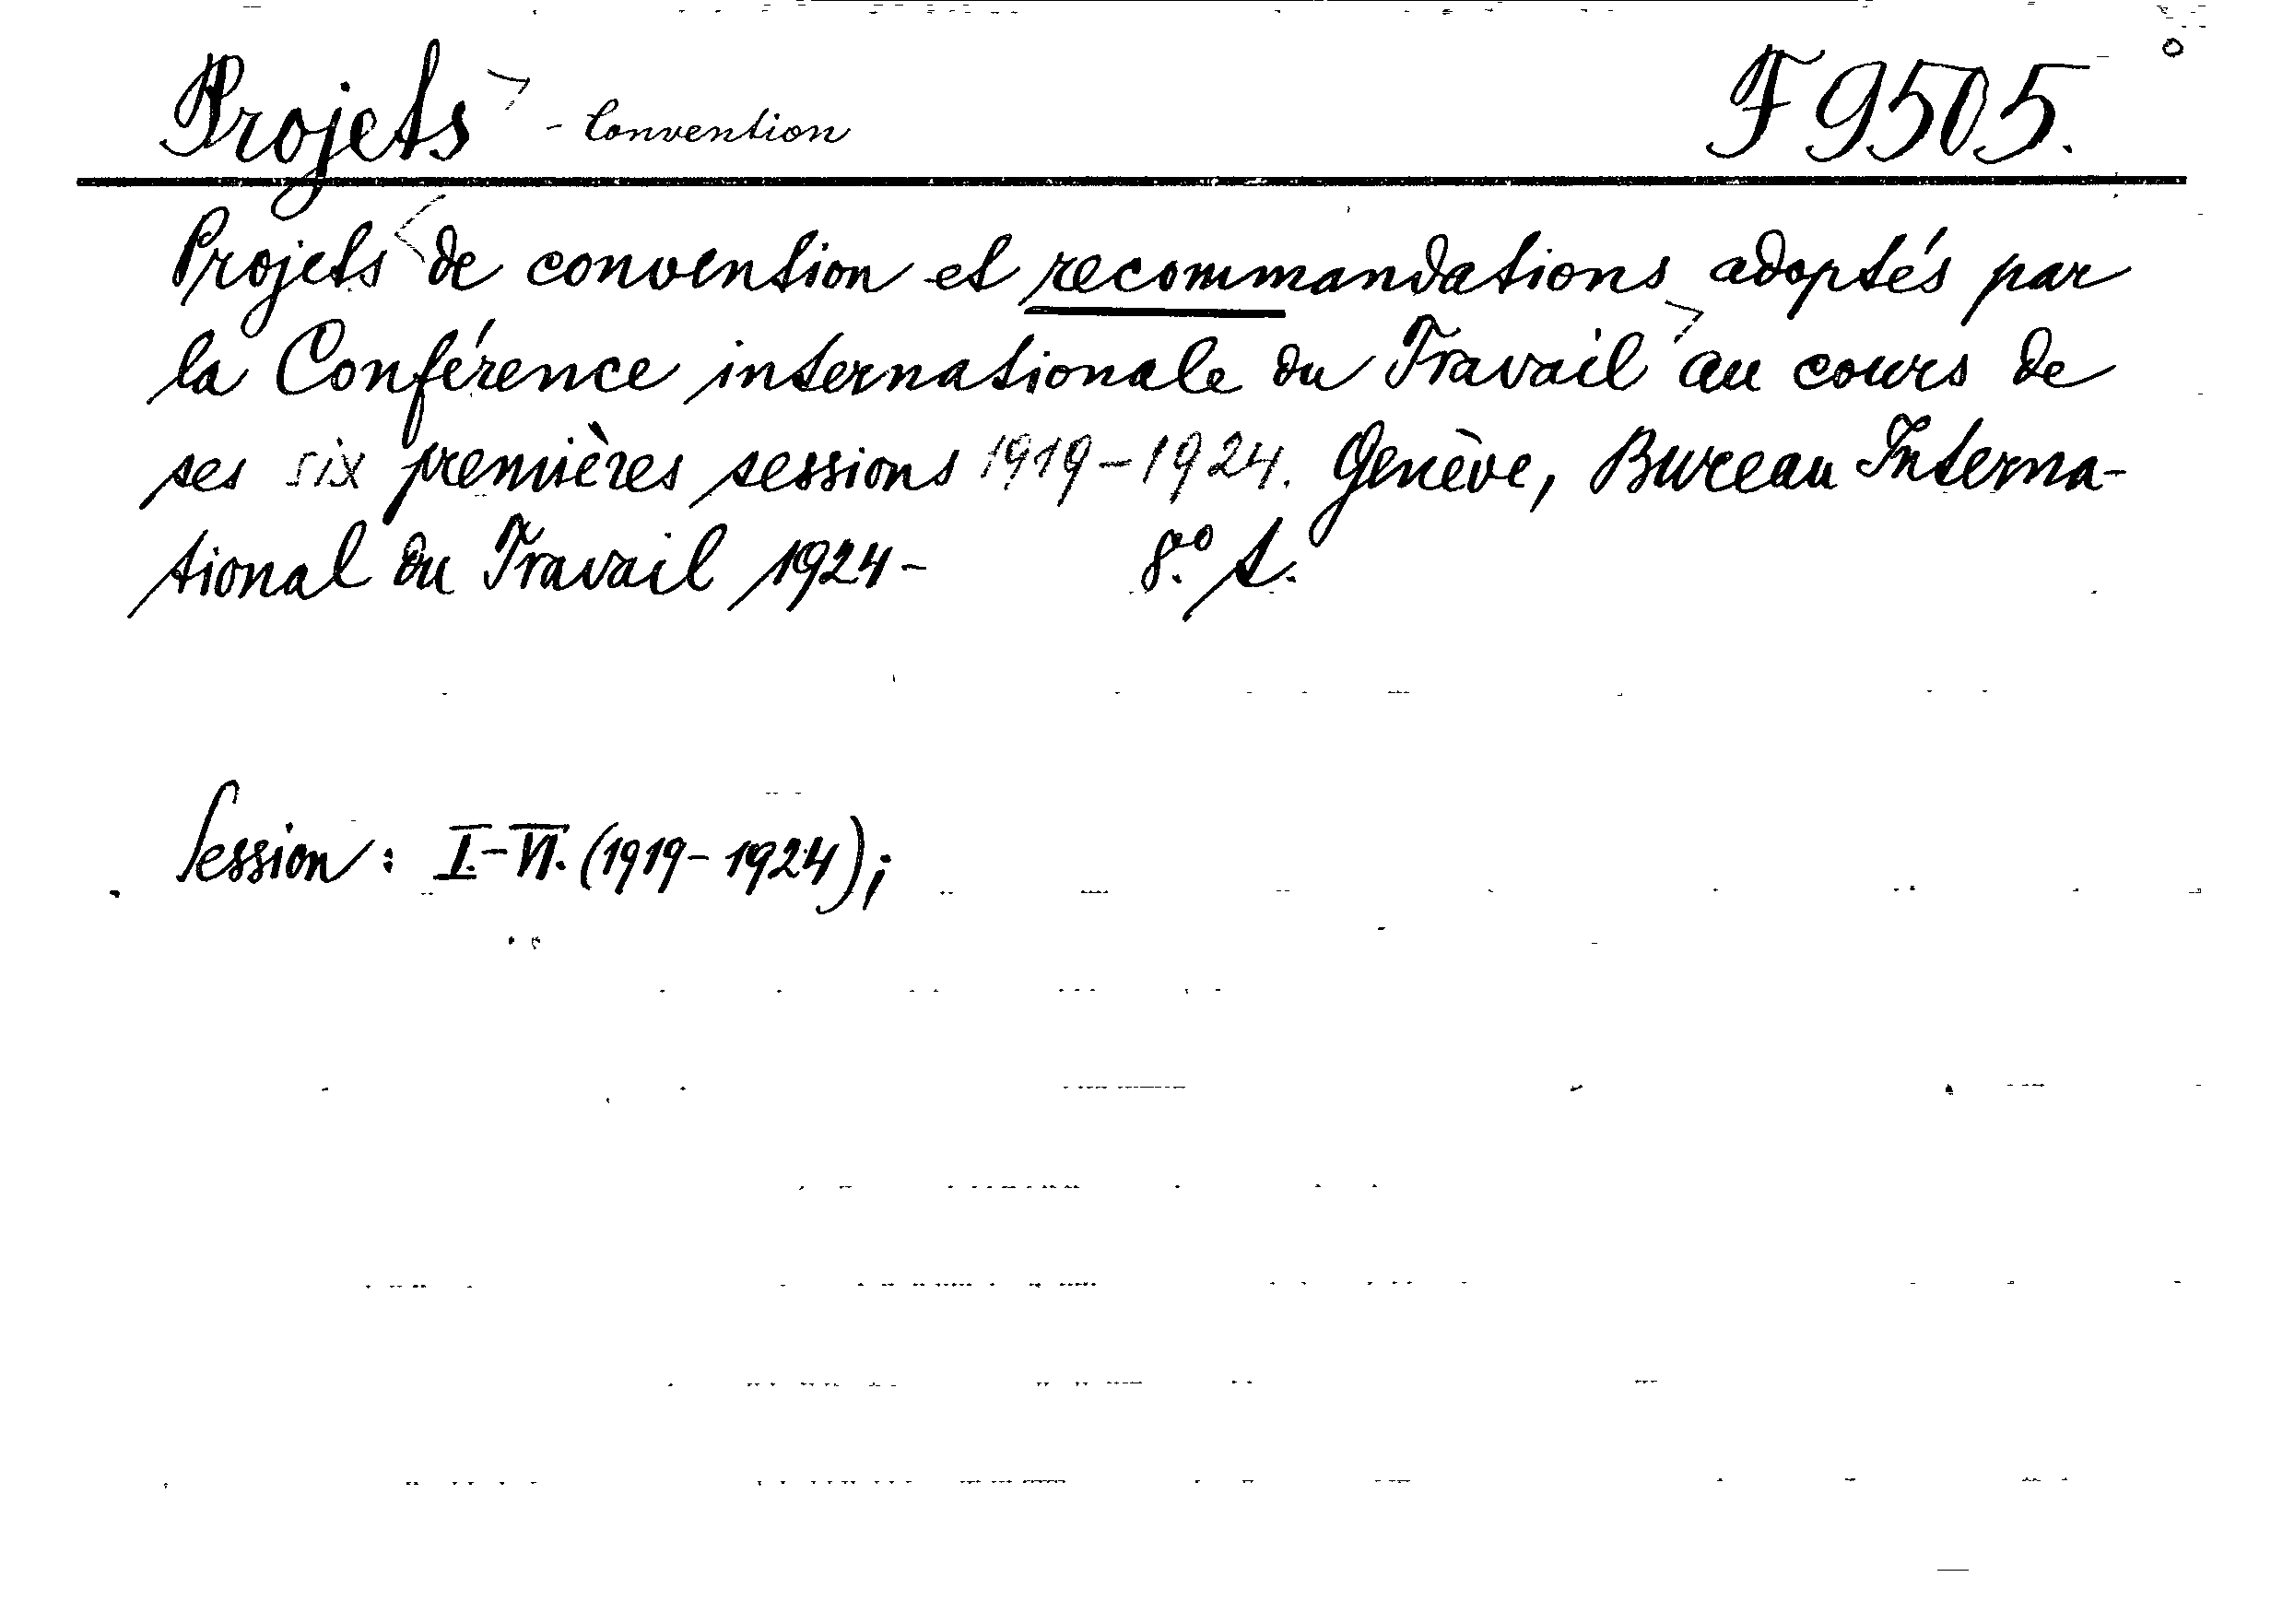 Projets - Convention F 9505.
Projets de convention et recommandations adoptés par
la Conférence internationale du Travail au cours de
ses six premières sessions 1919-1924. Genève, Bureau Interna-
tional du Travail 1924- 8.º t.
Session: I.-VI. (1919-1924);